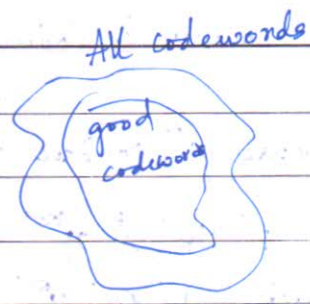 All codewords
good
codewords